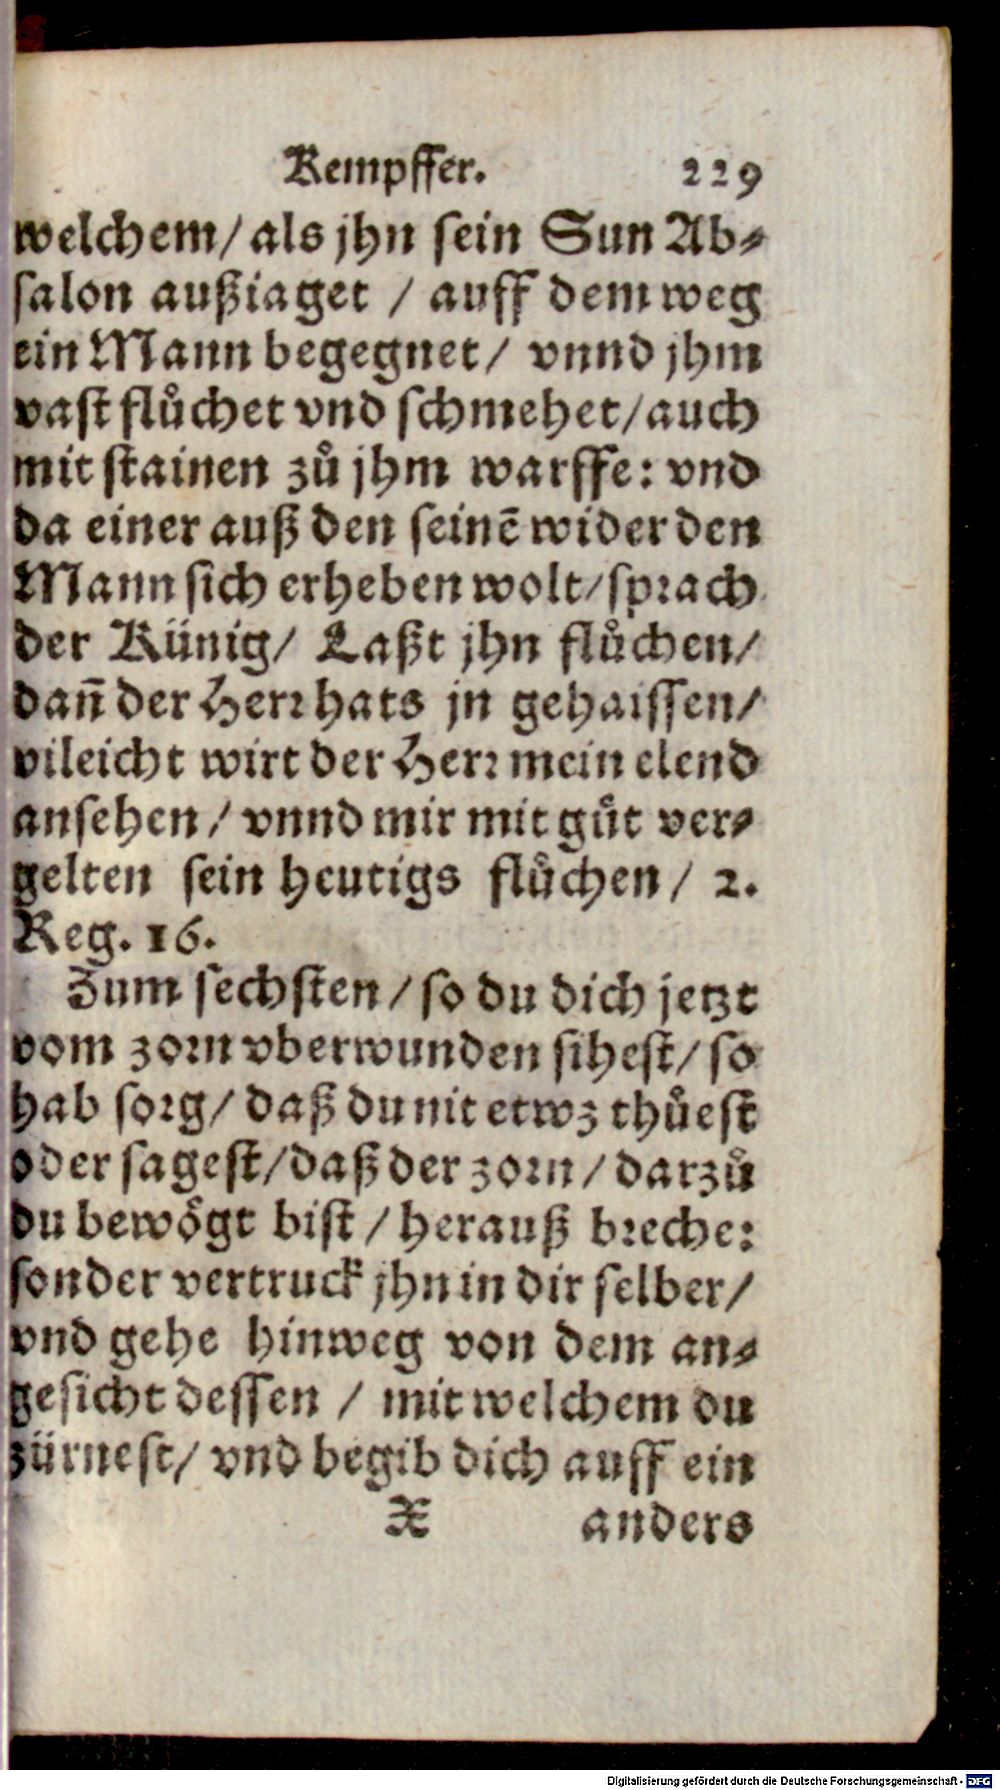 Kempffer. 229
welchem/ als jhn sein Sun Ab-
salon außiaget / auff dem weg
ein Mann begegnet/ vnnd jhm
vast flůchet vnd schmehet/ auch
mit stainen zů jhm warffe: vnd
da einer auß den seinē wider den
Mann sich erheben wolt/ sprach
der Künig/ Laßt jhn flůchen/
dañ der Herr hats jn gehaissen/
vileicht wirt der Herr mein elend
ansehen / vnnd mir mit gůt ver-
gelten sein heutigs flůchen / 2.
Reg. 16.
Zum sechsten / so du dich jetzt
vom zorn vberwunden sihest/ so
hab sorg/ daß du nit etwz thůest
oder sagest/ daß der zorn / darzů
du bewögt bist / herauß breche:
sonder vertruck jhn in dir selber/
vnd gehe hinweg von dem an-
gesicht dessen / mit welchem du
zürnest/ vnd begib dich auff ein
X anders
Digitalisierung gefördert durch die Deutsche Forschungsgemeinschaft - DFG